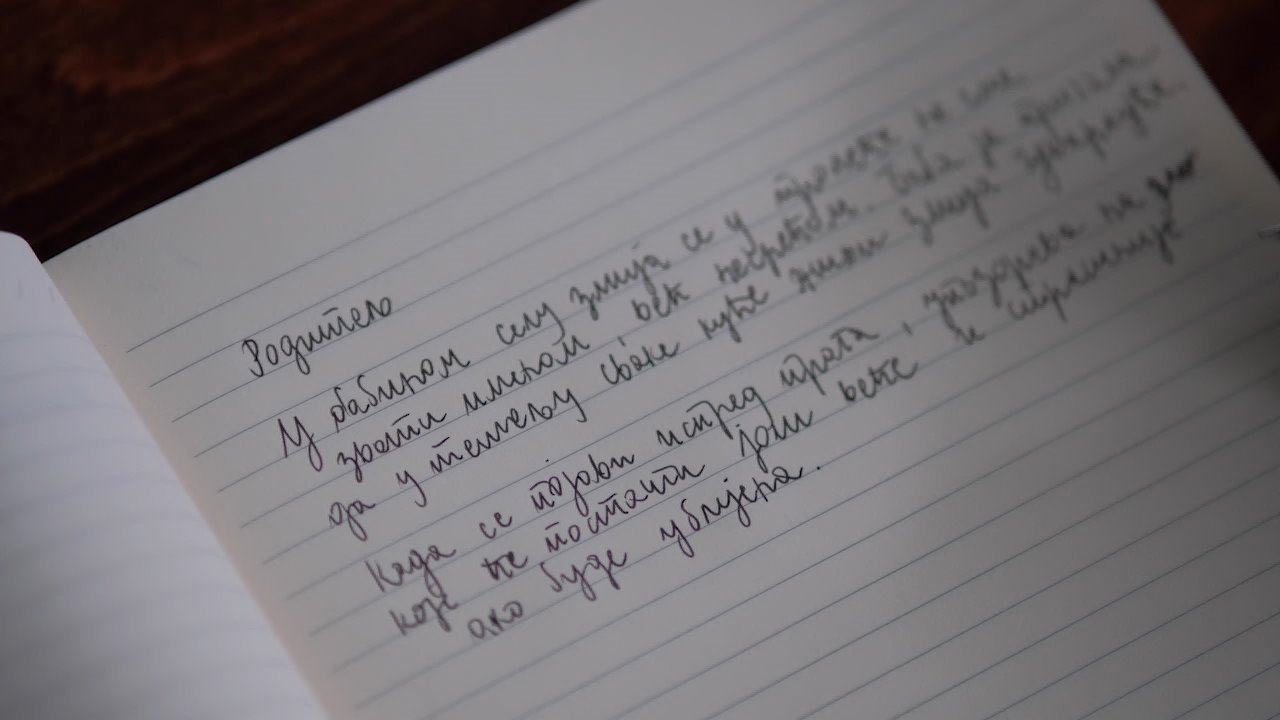 Родитељ
У бабином селу змија се у пролеће не сме
звати именом, већ несрећом. Баба је причала
да у темељу сваке куће живи змија чуваркућа.
Када се појави испред прага, упозорава на зло
које ће постати још веће и страшније
ако буде убијена.